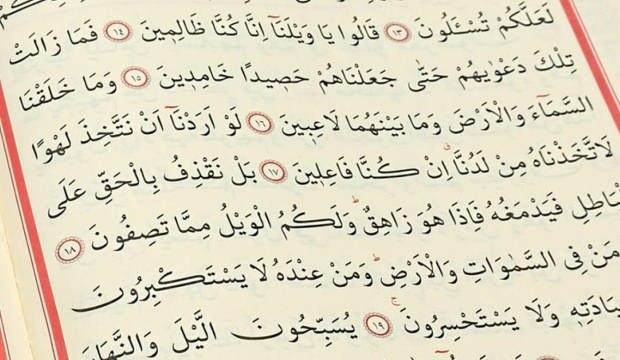 لَعَلَّكُمْ تُسْـَٔلُونَ ﴿١٣﴾ قَالُوا يَا وَيْلَنَٓا اِنَّا كُنَّا ظَالِمٖينَ ﴿١٤﴾ فَمَا زَالَتْ
تِلْكَ دَعْوٰيهُمْ حَتّٰى جَعَلْنَاهُمْ حَصٖيدًا خَامِدٖينَ ﴿١٥﴾ وَمَا خَلَقْنَا
السَّمَٓاءَ وَالْاَرْضَ وَمَا بَيْنَهُمَا لَاعِبٖينَ ﴿١٦﴾ لَوْ اَرَدْنَٓا اَنْ نَتَّخِذَ لَهْوًا
لَاتَّخَذْنَاهُ مِنْ لَدُنَّاۗ اِنْ كُنَّا فَاعِلٖينَ ﴿١٧﴾ بَلْ نَقْذِفُ بِالْحَقِّ عَلَى
فَيَدْمَغُهُ فَاِذَا هُوَ زَاهِقٌۜ وَلَكُمُ الْوَيْلُ مِمَّا تَصِفُونَ ﴿١٨﴾
مَنْ فِى السَّمٰوَاتِ وَالْاَرْضِۜ وَمَنْ عِنْدَهُ لَا يَسْتَكْبِرُونَ
وَلَا يَسْتَحْسِرُونَۚ ﴿١٩﴾ يُسَبِّحُونَ الَّيْلَ وَالنَّهَارَ